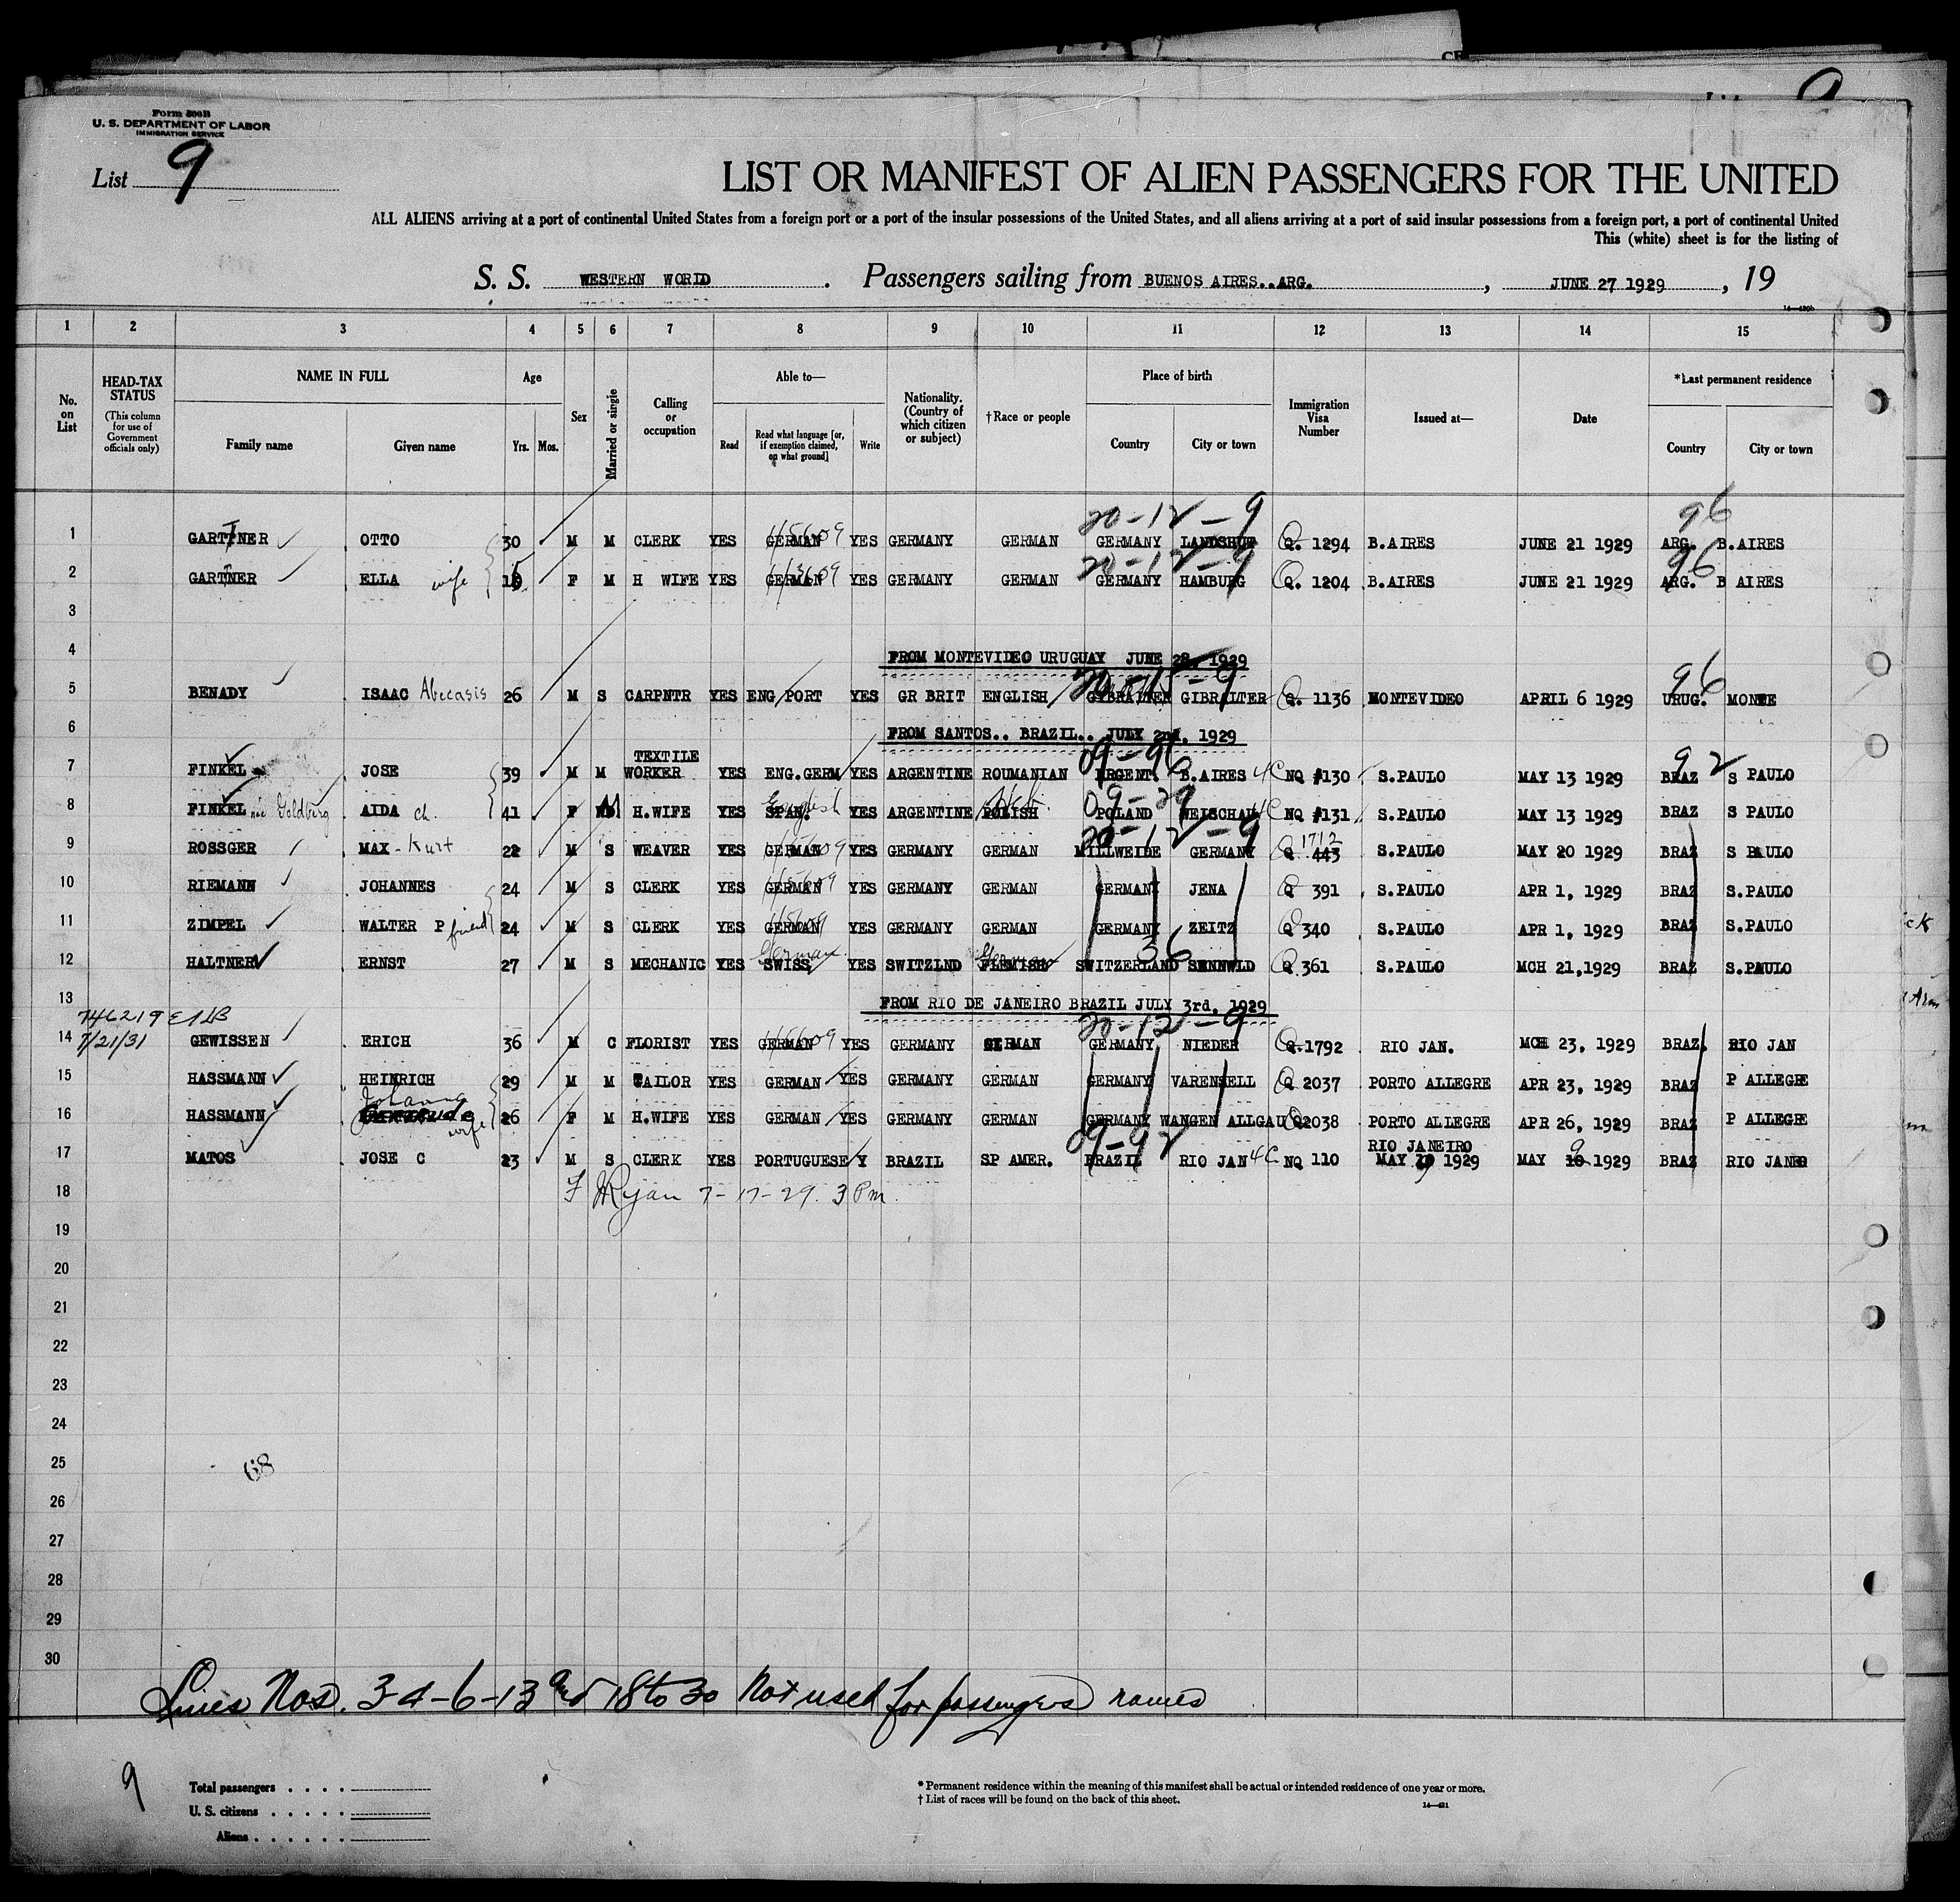 Form 500B
U. S. DEPARTMENT OF LABOR
IMMIGRATION SERVICE
List 9
LIST OR MANIFEST OF ALIEN PASSENGERS FOR THE UNITED
ALL ALIENS arriving at a port of continental United States from a foreign port or a port of the insular possessions of the United States, and all aliens arriving at a port of said insular possessions from a foreign port, a port of continental United
This (white) sheet is for the listing of
S. S. WESTERN WORLD . Passengers sailing from BUENOS AIRES..ARG. , JUNE 27 1929 , 19
1 2 3 4 5 6 7 8 9 10 11 12 13 14 15
No. on List
HEAD-TAX STATUS (This column for use of Government officials only)
NAME IN FULL
Family name Given name
Age
Yrs. Mos.
Sex
Married or single
Calling or occupation
Able to—
Read Read what language [or, if exemption claimed, on what ground] Write
Nationality. (Country of which citizen or subject)
†Race or people
Place of birth
Country City or town
Immigration Visa Number
Issued at—
Date
*Last permanent residence
Country City or town
20-12-9 96
1 GARTTNER OTTO 30 M M CLERK YES GERMAN YES GERMANY GERMAN GERMANY LANDSHUT Q. 1294 B.AIRES JUNE 21 1929 ARG. B.AIRES
20-12-9 96
2 GARTNER ELLA wife F M H WIFE YES GERMAN YES GERMANY GERMAN GERMANY HAMBURG Q. 1204 B.AIRES JUNE 21 1929 ARG. B AIRES
3
4 FROM MONTEVIDEO URUGUAY JUNE 28, 1929
96
5 BENADY ISAAC Abecasis 26 M S CARPNTR YES ENG/PORT YES GR BRIT ENGLISH GYBRALTER GIBRALTER Q. 1136 MONTEVIDEO APRIL 6 1929 URUG. MONTE
6 FROM SANTOS.. BRAZIL.. JULY 2nd, 1929
7 FINKEL JOSE 39 M M TEXTILE WORKER YES ENG.GERM YES ARGENTINE ROUMANIAN ARGENT. B.AIRES 4C NQ #130 S.PAULO MAY 13 1929 BRAZ S PAULO
92
8 FINKEL née Goldberg AIDA ch. 41 F M H.WIFE YES SPAN. English YES ARGENTINE POLISH POLAND WEISCHAU 4C NQ #131 S.PAULO MAY 13 1929 BRAZ S PAULO
9 ROSSGER MAX - Kurt 22 M S WEAVER YES GERMAN YES GERMANY GERMAN MILLWEIDE GERMANY Q 443 1712 S.PAULO MAY 20 1929 BRAZ S PAULO
10 RIEMANN JOHANNES 24 M S CLERK YES GERMAN YES GERMANY GERMAN GERMANY JENA Q 391 S.PAULO APR 1, 1929 BRAZ S.PAULO
11 ZIMPEL WALTER P friend 24 M S CLERK YES GERMAN YES GERMANY GERMAN GERMANY ZEITZ Q 340 S.PAULO APR 1, 1929 BRAZ S.PAULO
12 HALTNER ERNST 27 M S MECHANIC YES SWISS German YES SWITZLND FLEMISH German SWITZERLAND SENNWLD Q 361 S.PAULO MCH 21,1929 BRAZ S.PAULO
13 FROM RIO DE JANEIRO BRAZIL JULY 3rd, 1929
746219
20-12-9
14 7/21/31 GEWISSEN ERICH 36 M C FLORIST YES GERMAN YES GERMANY GERMAN GERMANY NIEDER Q.1792 RIO JAN. MCH 23, 1929 BRAZ. RIO JAN
15 HASSMANN HEINRICH 29 M M TAILOR YES GERMAN YES GERMANY GERMAN GERMANY VARENSELL Q 2037 PORTO ALLEGRE APR 23, 1929 BRAZ P ALLEGRE
16 HASSMANN Johanna wife 26 F M H.WIFE YES GERMAN YES GERMANY GERMAN GERMANY WANGEN ALLGAU Q2038 PORTO ALLEGRE APR 26, 1929 BRAZ P ALLEGRE
09-92
17 MATOS JOSE C 23 M S CLERK YES PORTUGUESE Y BRAZIL SP AMER. BRAZIL RIO JAN 4C NQ 110 RIO JANEIRO MAY 9 1929 MAY 9 1929 BRAZ RIO JANRO
18 Ryan 7-17-29. 3 Pm.
19
20
21
22
23
24
25 68
26
27
28
29
30
Lines Nos. 3-4-6-13 and 18 to 30 Not used for passengers names
9
Total passengers . . . .
U. S. citizens . . . . .
Aliens . . . . . .
* Permanent residence within the meaning of this manifest shall be actual or intended residence of one year or more.
† List of races will be found on the back of this sheet.